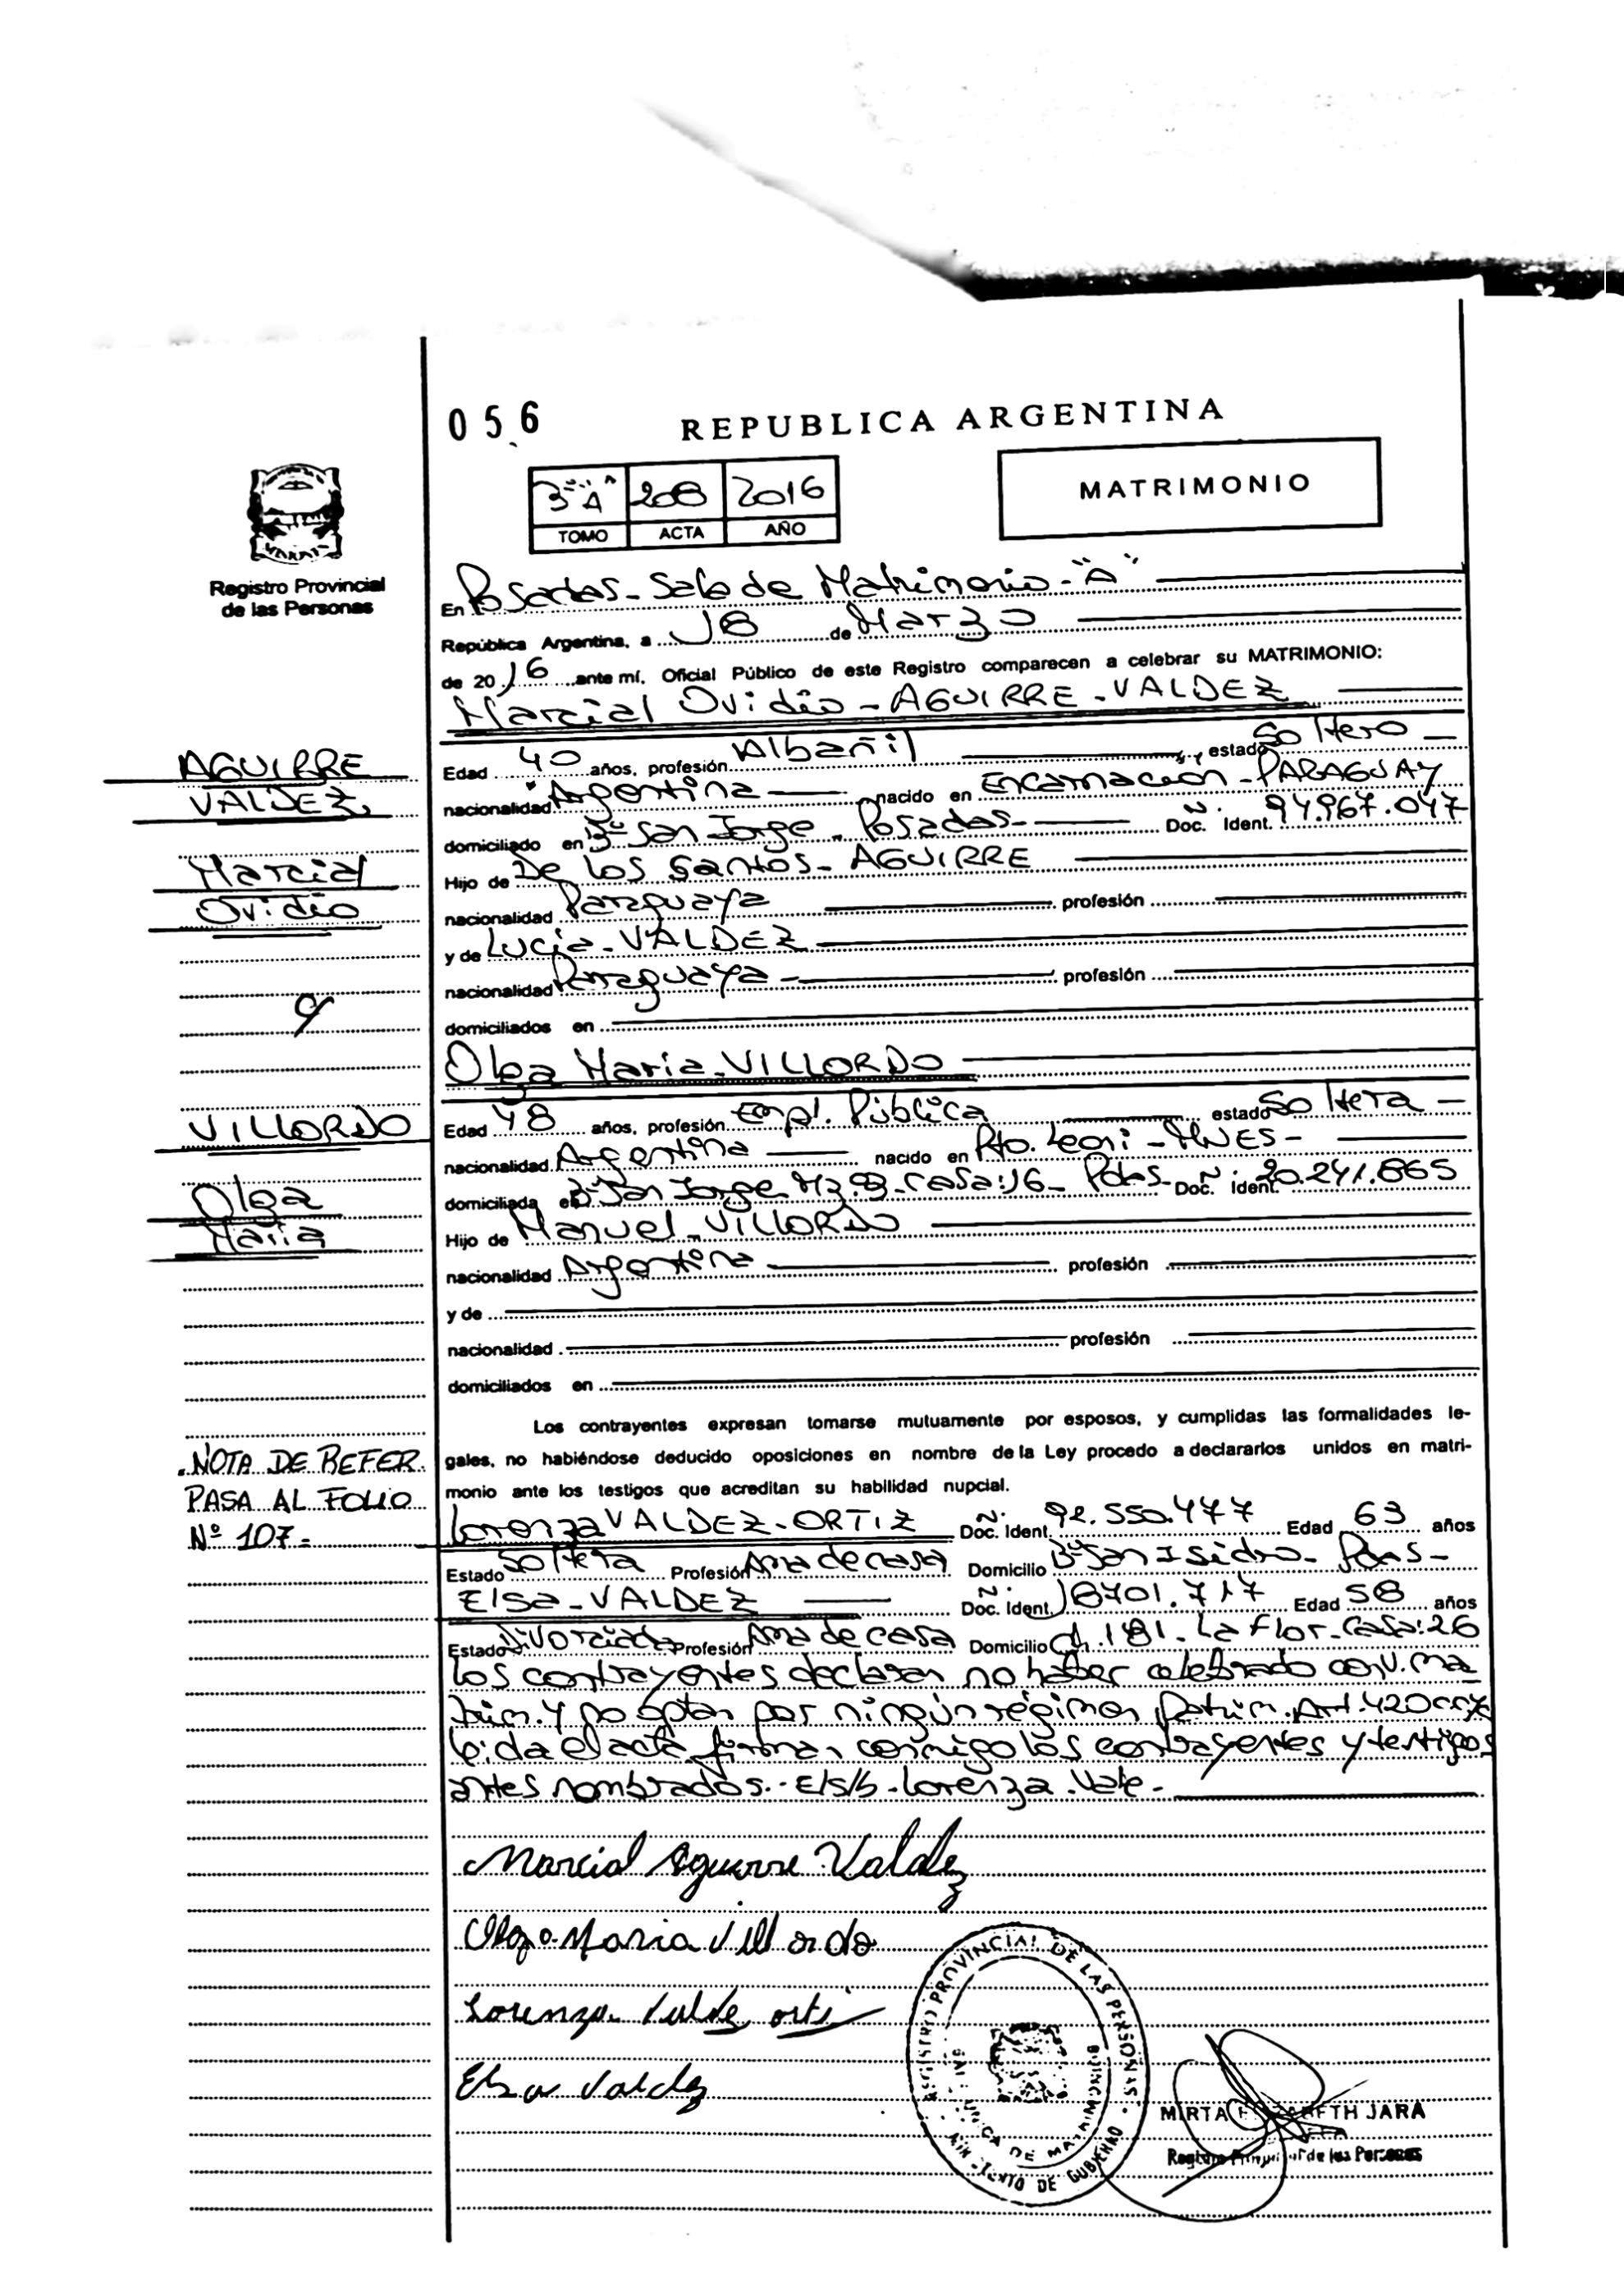 056
REPUBLICA ARGENTINA
3º "A" 208 2016
TOMO ACTA AÑO
MATRIMONIO
Registro Provincial
de las Personas
En Posadas - Sala de Matrimonio - "A"
República Argentina, a 18 de Marzo
de 2016 ante mí, Oficial Público de este Registro comparecen a celebrar su MATRIMONIO:
Marcial Ovidio - AGUIRRE - VALDEZ
AGUIRRE
VALDEZ
Marcial
Ovidio
Edad 40 años, profesión Albañil, estado Soltero -
nacionalidad Argentina nacido en Encarnacion - PARAGUAY
domiciliado en Bº San Jorge - Posadas - Doc. Ident. Nº 94.967.047
Hijo de De los Santos - AGUIRRE
nacionalidad Paraguaya profesión
y de Lucia - VALDEZ
nacionalidad Paraguaya - profesión
domiciliados en
Olga Maria - VILLORDO
VILLORDO
Olga
Maria
Edad 48 años, profesión Empl. Pública estado Soltera -
nacionalidad Argentina nacido en Pto. Leoni - MNES -
domiciliada en Bº San Jorge Mz. Casa: 16 - Pdas - Doc. Ident. Nº 20.241.865
Hijo de Manuel - VILLORDO
nacionalidad Argentina profesión
y de
nacionalidad profesión
domiciliados en
Los contrayentes expresan tomarse mutuamente por esposos, y cumplidas las formalidades le-
gales, no habiéndose deducido oposiciones en nombre de la Ley procedo a declararlos unidos en matri-
monio ante los testigos que acreditan su habilidad nupcial.
NOTA DE REFER.
PASA AL FOLIO
Nº 107 -
Lorenza VALDEZ - ORTIZ Doc. Ident. Nº 92.550.477 Edad 63 años
Estado Soltera Profesión Ama de casa Domicilio Bº San Isidro - Pdas -
Elsa - VALDEZ Doc. Ident. Nº 18701.717 Edad 58 años
Estado Divorciada Profesión Ama de casa Domicilio Ch. 181 - La Flor - Casa: 26
Los contrayentes declaran no haber celebrado conv. ma-
trim. y no optan por ningún régimen patrim. Art. 420 ccy
leida el acta firman conmigo los contrayentes y testigos
antes nombrados. - E/s/b - Lorenza - Vale -
Marcial Aguirre Valdez
Olga Maria Villordo
Lorenza Valde orti
Elsa Valdez
REGISTRO PROVINCIAL DE LAS PERSONAS
DE GOBIERNO
MIRTA JARA
Registro Provincial de las Personas